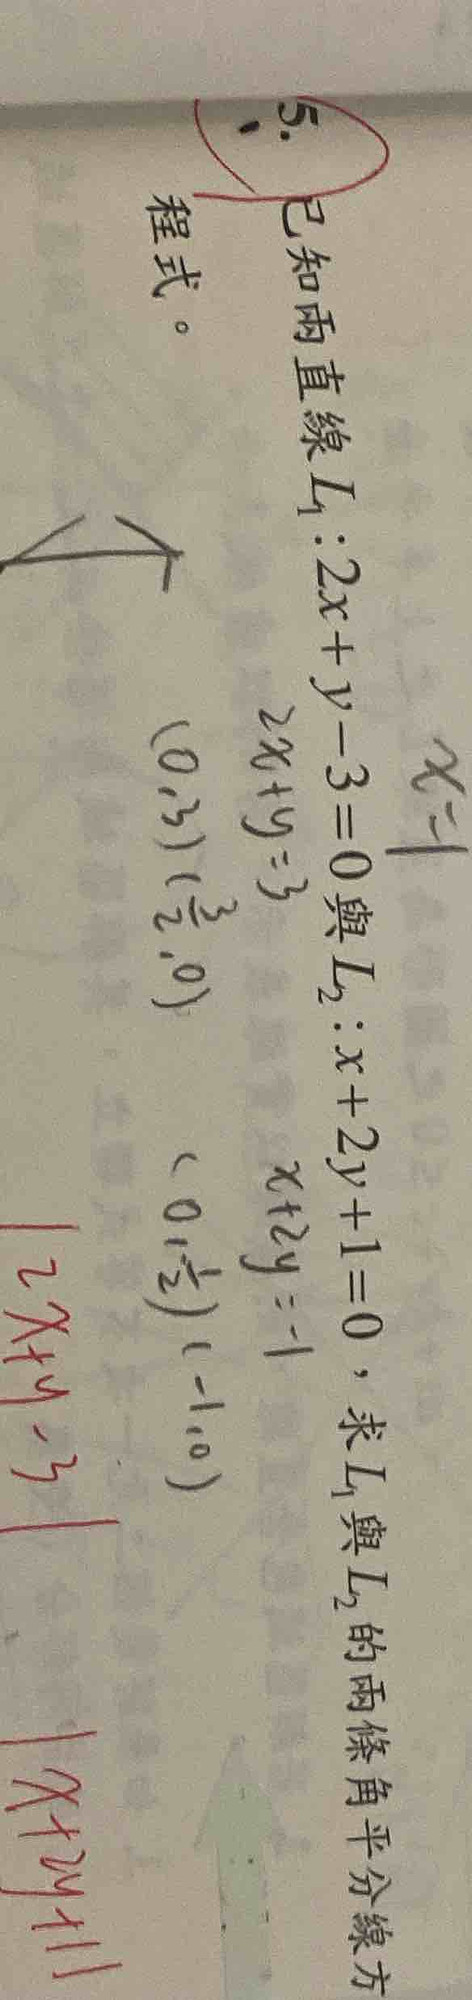 x=1
5. 已知兩直線L₁:2x+y-3=0與L₂:x+2y+1=0，求L₁與L₂的兩條角平分線方
程式。
2x+y=3
x+2y=-1
(0,3) (3/2,0)
(0,-1/2) (-1,0)
|2x+y-3|
|x+2y+1|